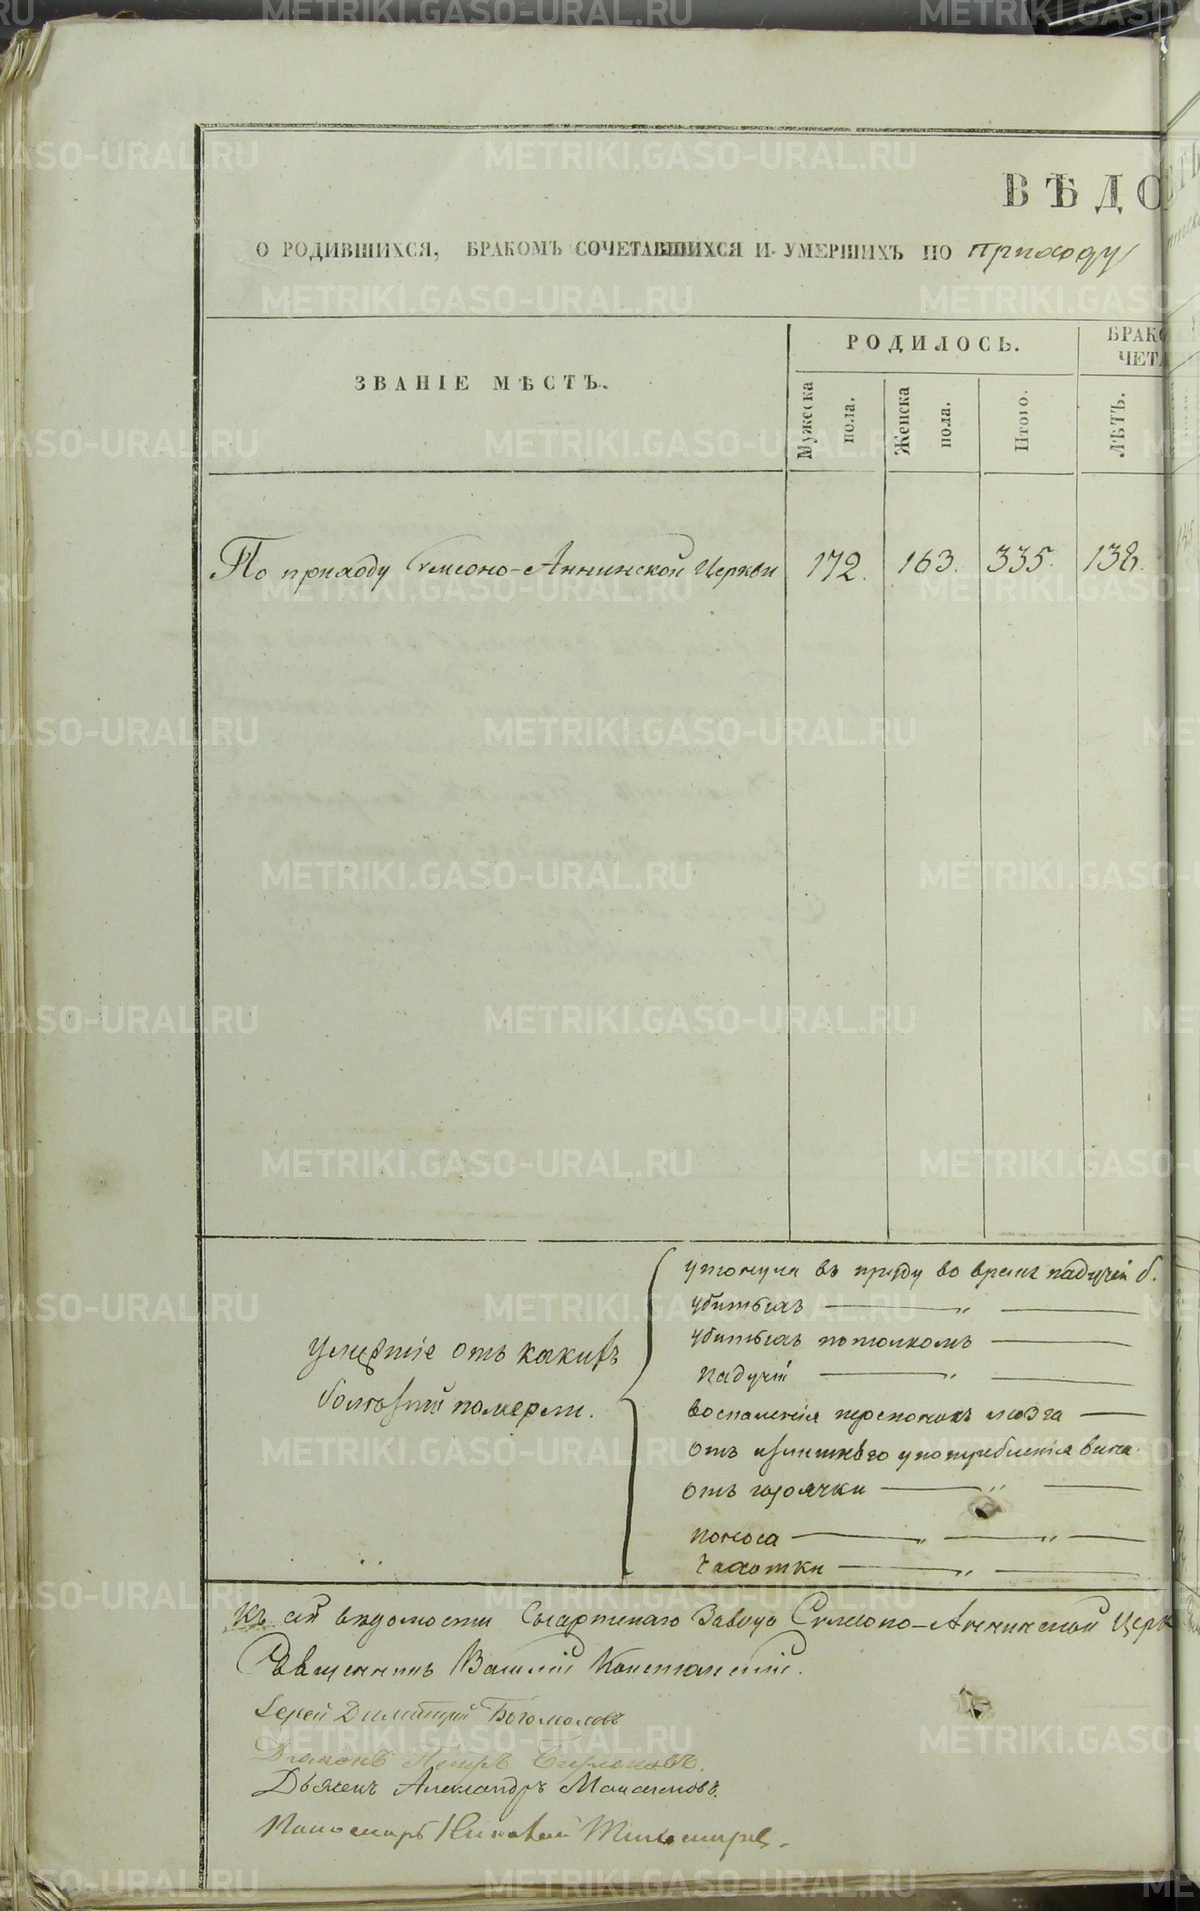 ВѢДО
О РОДИВШИХСЯ, БРАКОМЪ СОЧЕТАВШИХСЯ И УМЕРШИХЪ ПО приходу
ЗВАНІЕ МѢСТЪ.
РОДИЛОСЬ.
БРАКО
ЧЕТА
Мужеска пола.
Женска пола.
Итого.
ЛѢТЪ.
По приходу Симеоно-Аннинской Церкви 172. 163. 335. 138.
Умершіе отъ какихъ
болѣзній померли.
утонула въ пруду во время падучей б.
убитыхъ — „ —
убитыхъ потолкомъ —
падучій — „ —
воспаленія перепонокъ мозга —
отъ излишняго употребленія вина.
отъ горячки — „ —
поноса — „ — „ —
Чахотки — „ —
Къ сей вѣдомости Сысертскаго Завода Симеоно-Аннинской Церк
Священникъ Василій Константин
Іерей Димитрій Богомоловъ
Діаконъ Петръ
Дьячекъ Александръ Максимовъ.
Пономарь Николай Тихомировъ.
METRIKI.GASO-URAL.RU